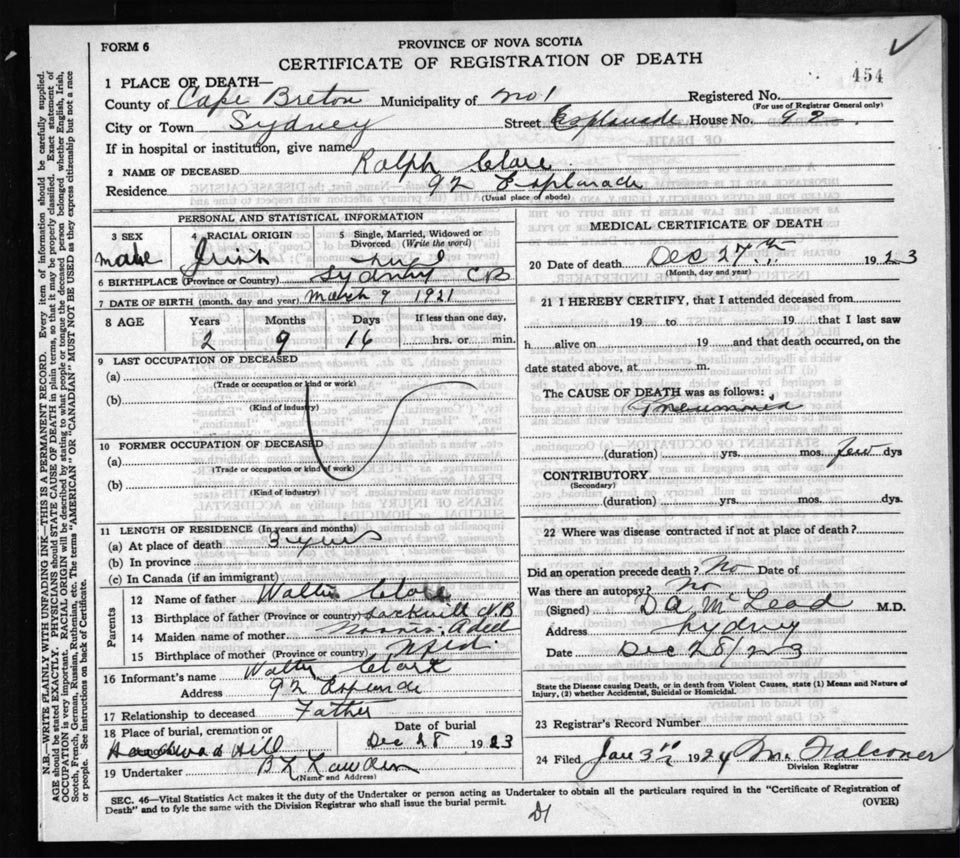 FORM 6
PROVINCE OF NOVA SCOTIA
CERTIFICATE OF REGISTRATION OF DEATH
454
1 PLACE OF DEATH—
County of Cape Breton Municipality of No 1 Registered No.
(For use of Registrar General only)
City or Town Sydney Street Esplanade House No. 92
If in hospital or institution, give name
2 NAME OF DECEASED Ralph
Residence 92 Esplanade
(Usual place of abode)
PERSONAL AND STATISTICAL INFORMATION
3 SEX 4 RACIAL ORIGIN 5 Single, Married, Widowed or Divorced (Write the word)
male Irish
6 BIRTHPLACE (Province or Country) Sydney CB
7 DATE OF BIRTH (month, day and year) March 9 1921
8 AGE Years Months Days If less than one day,
2 9 16 hrs. or min.
9 LAST OCCUPATION OF DECEASED
(a)
(Trade or occupation or kind or work)
(b)
(Kind of industry)
10 FORMER OCCUPATION OF DECEASED
(a)
(Trade or occupation or kind of work)
(b)
(Kind of industry)
11 LENGTH OF RESIDENCE (In years and months)
(a) At place of death 3 years
(b) In province
(c) In Canada (if an immigrant)
Parents
12 Name of father Walter
13 Birthplace of father (Province or country) Sackville N.B
14 Maiden name of mother
15 Birthplace of mother (Province or country) Nfld.
16 Informant's name Walter
Address 92 Esplanade
17 Relationship to deceased Father
18 Place of burial, cremation or Date of burial
Hill Dec 28 1923
19 Undertaker
(Name and Address)
MEDICAL CERTIFICATE OF DEATH
20 Date of death Dec 27th 1923
(Month, day and year)
21 I HEREBY CERTIFY, that I attended deceased from
19 to 19 that I last saw
h alive on 19 and that death occurred, on the
date stated above, at m.
The CAUSE OF DEATH was as follows:
Pneumonia
(duration) yrs. mos. few dys
CONTRIBUTORY
(Secondary)
(duration) yrs. mos. dys.
22 Where was disease contracted if not at place of death?
Did an operation precede death? No Date of
Was there an autopsy? No
(Signed) D A McLeod M.D.
Address Sydney
Date Dec 28/23
State the Disease causing Death, or in death from Violent Causes, state (1) Means and Nature of Injury, (2) whether Accidental, Suicidal or Homicidal.
23 Registrar's Record Number
24 Filed Jan 3rd 1924 M. Falconer
Division Registrar
SEC. 46—Vital Statistics Act makes it the duty of the Undertaker or person acting as Undertaker to obtain all the particulars required in the "Certificate of Registration of
Death" and to fyle the same with the Division Registrar who shall issue the burial permit. (OVER)
N.B.—WRITE PLAINLY, WITH UNFADING INK—THIS IS A PERMANENT RECORD. Every item of information should be carefully supplied.
AGE should be stated EXACTLY. PHYSICIANS should STATE CAUSE OF DEATH in plain terms, so that it may be properly classified. Exact statement of
OCCUPATION is very important. RACIAL ORIGIN will be described by stating to what people or tongue the deceased person belonged whether English, Irish,
Scotch, French, German, Russian, Ruthenian, etc. The terms "AMERICAN" OR "CANADIAN" MUST NOT BE USED as they express citizenship but not a race
or people. See instructions on back of Certificate.